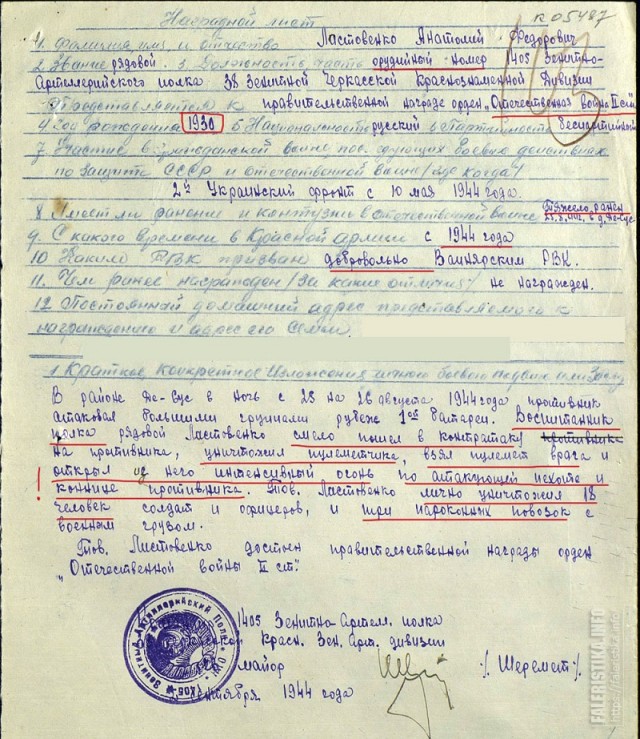 Наградной лист
к 05487
1. Фамилия, имя и отчество Ластовенко Анатолий Федорович
2. Звание рядовой. 3 Должность, часть орудийный номер 1405 Зенитно-
Артиллерийского полка 38 Зенитной Черкасской Краснознаменной Дивизии
Представляется к правительственной награде орден „Отечественная война II ст"
4. Год рождения 1930 5 Национальность русский 6 Партийность беспартийный
7 Участие в гражданской войне, последующих боевых действиях
по защите СССР и отечественной войне /где когда/
2й Украинский фронт с 10 мая 1944 года.
8. Имеет ли ранения и контузии в отечественной войне Тяжело ранен
9. С какого времени в Красной армии с 1944 года
10 Каким РВК призван добровольно Вапнярским РВК.
11. Чем ранее награжден /За какие отличия/ не награжден.
12 Постоянный домашний адрес представляемого к
награждению и адрес его Семьи
1 Краткое Конкретное Изложение личного боевого подвига или Заслуг
В районе Де-Сус в ночь с 25 на 26 августа 1944 года противник
атаковал большими группами рубеж 1ой батареи. Воспитанник
полка рядовой Ластовенко смело пошел в контратаку противника
на противника, уничтожил пулеметчика, взял пулемет врага и
открыл из него интенсивный огонь по атакующей пехоте и
! коннице противника. Тов. Ластовенко лично уничтожил 18
человек солдат и офицеров, и три пароконных повозок с
военным грузом.
Тов. Ластовенко достоин правительственной награды орден
„Отечественной войны II ст".
1405 Зенитно-Артелл. полка
Красн. Зен. Арт. дивизии
майор /Шеремет/
1944 года
Зенитный Артиллерийский Полк
1405
FALERISTIKA.INFO